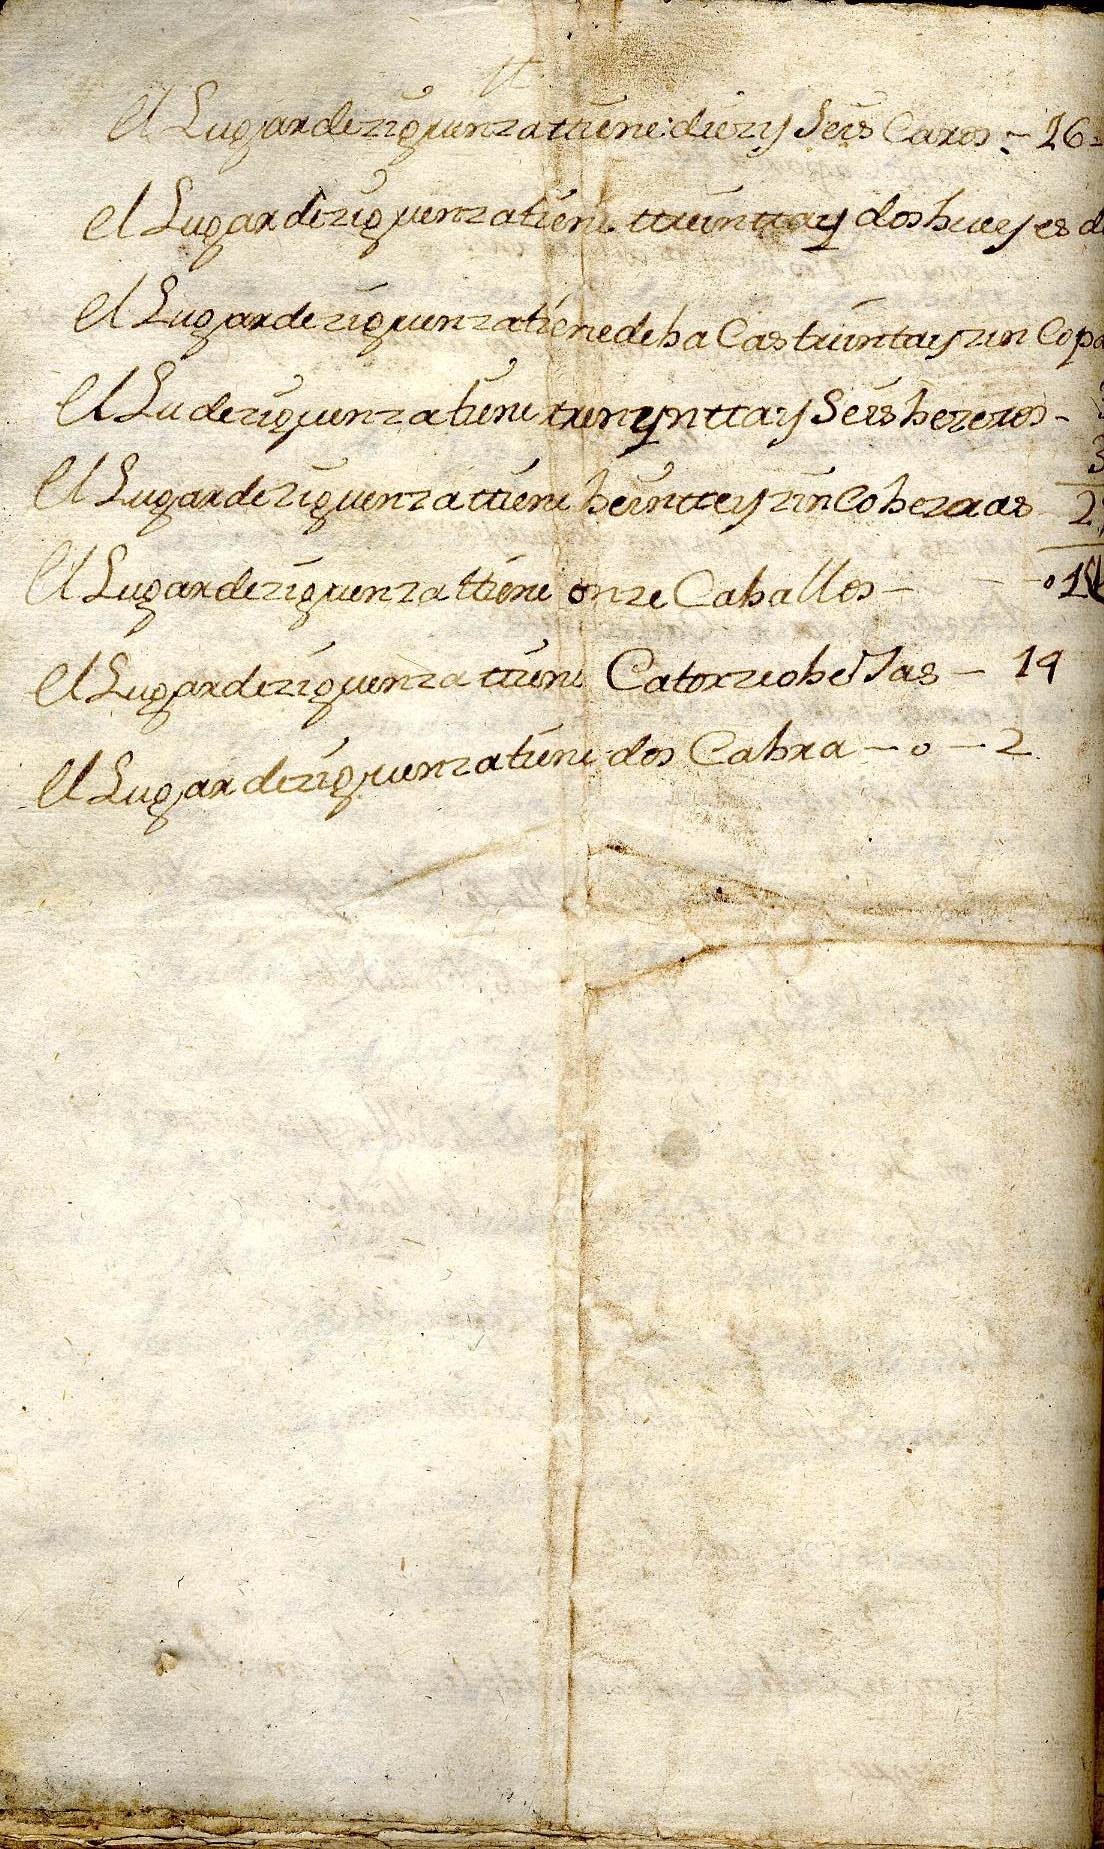 tt
el Lugar de ziguenza ttiene: diez y seis Caros - 16 =
el Lugar de ziguenza tiene ttreinttay dos hueyes d
el Lugar de ziguenza tiene de ha Cas treintay zin Co pa
el Lu de ziguenza tiene trenynttay Seis hezeros - 3
3
el Lugar de ziguenza ttiene heintteyzinCo hezaas 2
el Lugar de ziguenza ttiene onze Cahallos - - - 0 1
el Lugar de ziguenza ttiene Catorze ohejas - 14
el Lugar de ziguenza tiene dos Cahra - o - 2